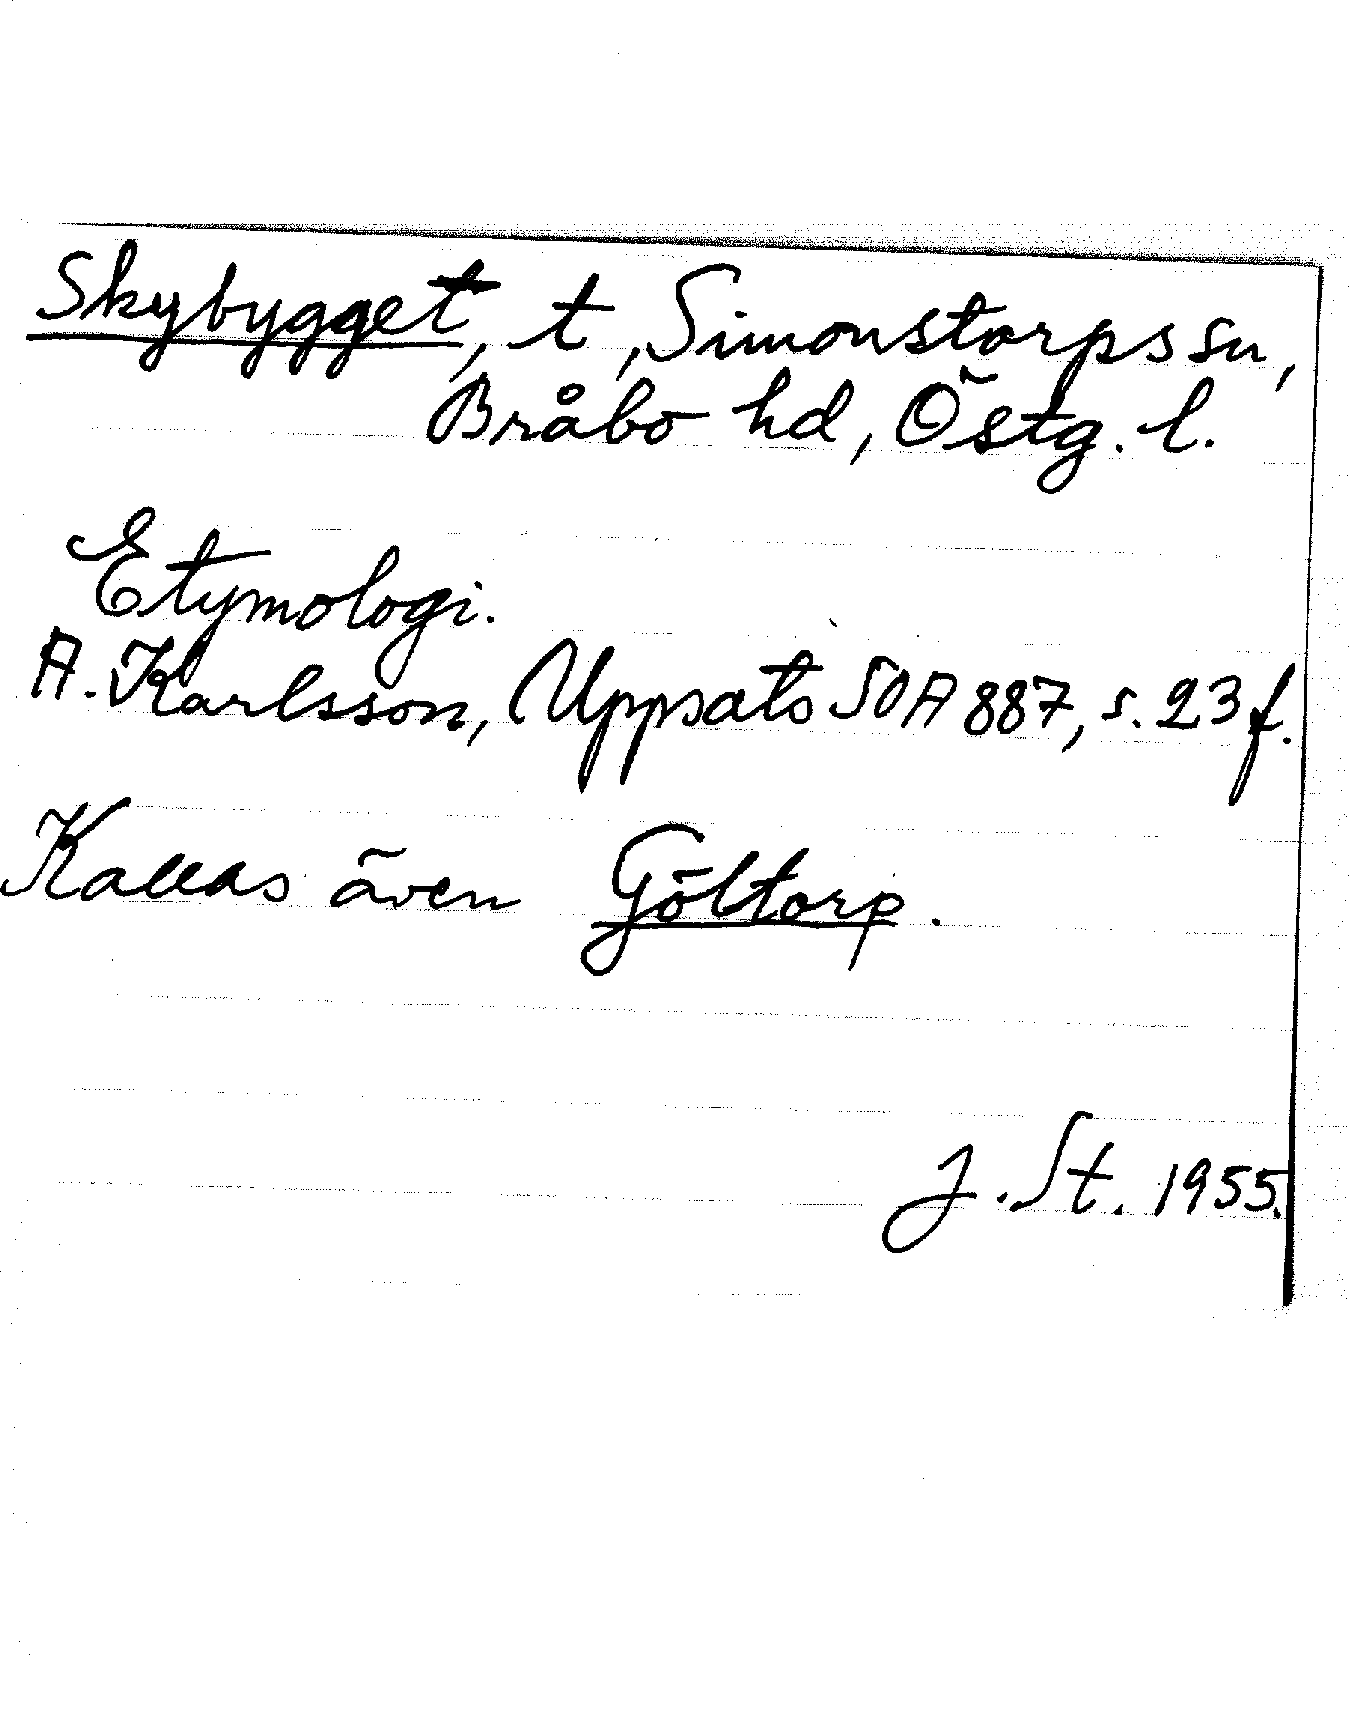 Skybygget, t, Simonstorps sn,
Bråbo hd, Östg. l.
Etymologi.
A. Karlsson, Uppsats SOA 887, s. 23 f.
Kallas även Göltorp.
J. St. 1955.